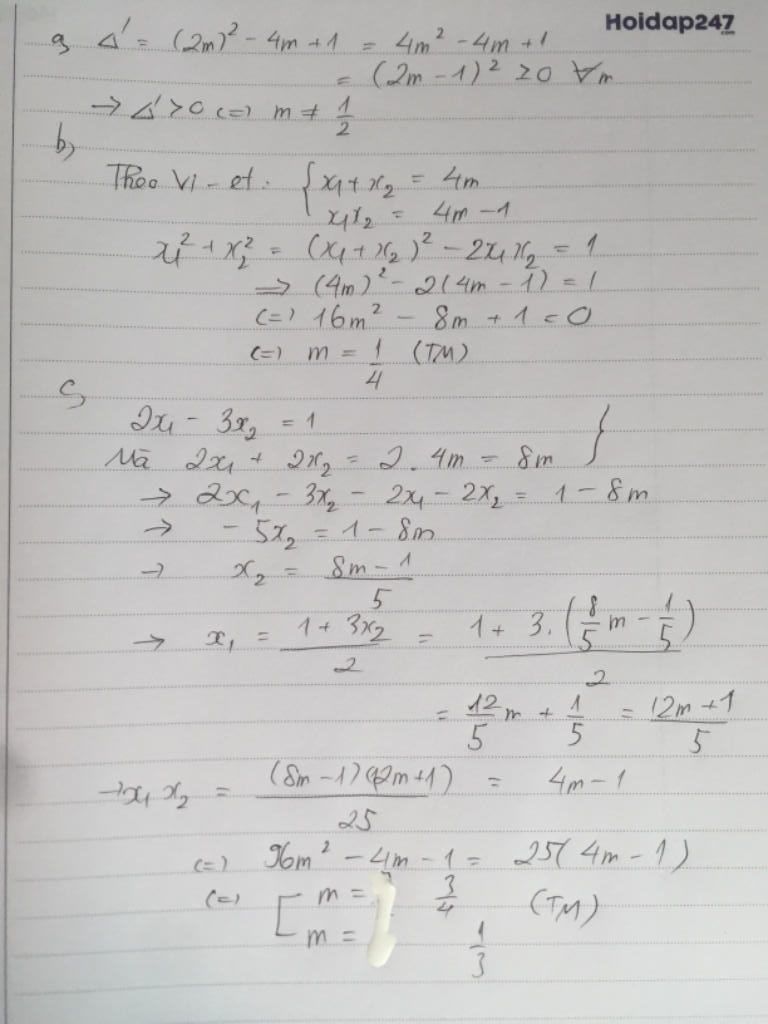 Hoidap247
a, Δ' = (2m)² - 4m + 1 = 4m² - 4m + 1
= (2m - 1)² ≥ 0 ∀m
→ Δ' > 0 (=) m ≠ 1/2
b,
Theo Vi-et: { x₁ + x₂ = 4m
x₁x₂ = 4m - 1
x₁² + x₂² = (x₁ + x₂)² - 2x₁x₂ = 1
=> (4m)² - 2(4m - 1) = 1
(=) 16m² - 8m + 1 = 0
(=) m = 1/4 (TM)
c,
2x₁ - 3x₂ = 1
Mà 2x₁ + 2x₂ = 2.4m = 8m }
→ 2x₁ - 3x₂ - 2x₁ - 2x₂ = 1 - 8m
→ -5x₂ = 1 - 8m
→ x₂ = (8m - 1)/5
→ x₁ = (1 + 3x₂)/2 = (1 + 3.(8/5 m - 1/5))/2
= 12/5 m + 1/5 = (12m + 1)/5
→ x₁x₂ = (8m - 1)(12m + 1)/25 = 4m - 1
(=) 96m² - 4m - 1 = 25(4m - 1)
(=) [ m = 3/4 (TM)
m = 1/3